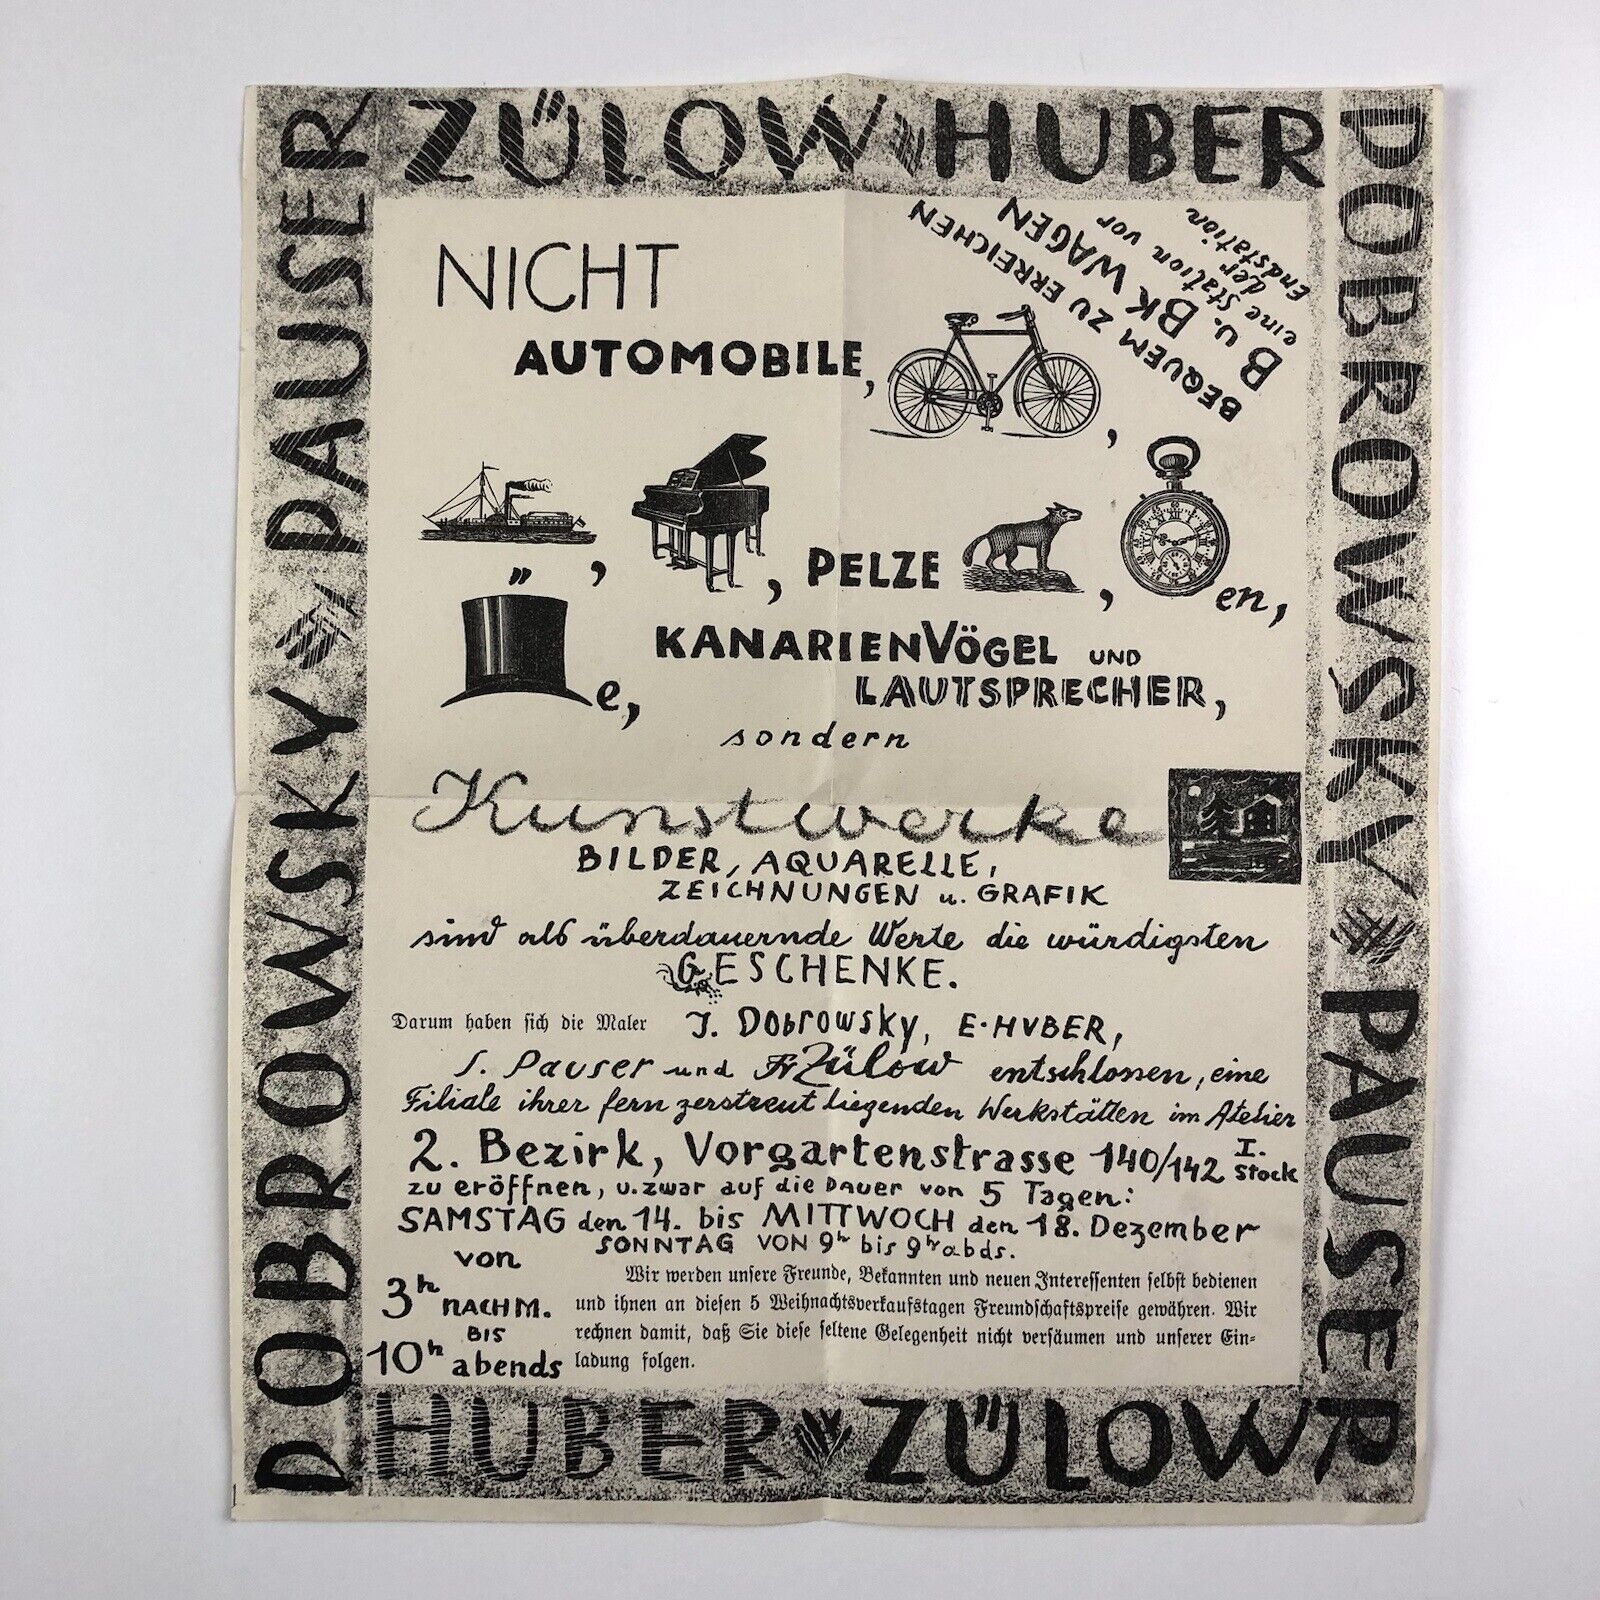 ZÜLOW HUBER
DOBROWSKY PAUSER
DOBROWSKY PAUSER
BEQUEM ZU ERREICHEN
B u. BK WAGEN
eine Station vor
der
Endstation
NICHT
AUTOMOBILE, ,
, , PELZE , en,
" e, KANARIENVÖGEL UND
LAUTSPRECHER,
sondern
Kunstwerke
BILDER, AQUARELLE,
ZEICHNUNGEN u. GRAFIK
sind als überdauernde Werte die würdigsten
GESCHENKE.
Darum haben sich die Maler J. Dobrowsky, E. HUBER,
S. Pauser und Fr Zülow entschlossen, eine
Filiale ihrer fern zerstreut liegenden Werkstätten im Atelier
2. Bezirk, Vorgartenstrasse 140/142 I. Stock
zu eröffnen, u. zwar auf die Dauer von 5 Tagen:
SAMSTAG den 14. bis MITTWOCH den 18. Dezember
SONNTAG VON 9h bis 9h abds.
von
3h NACHM.
BIS
10h abends
Wir werden unsere Freunde, Bekannten und neuen Interessenten selbst bedienen
und ihnen an diesen 5 Weihnachtsverkaufstagen Freundschaftspreise gewähren. Wir
rechnen damit, daß Sie diese seltene Gelegenheit nicht versäumen und unserer Ein-
ladung folgen.
HUBER ZÜLOW